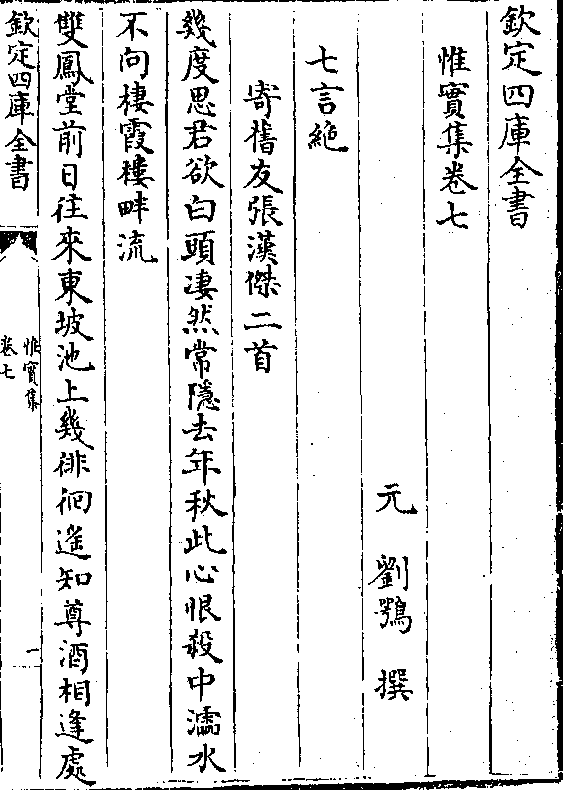 欽定四庫全書
惟實集卷七
元 劉鶚 撰
七言絶
寄舊友張漢傑二首
幾度思君欲白頭凄然常隱去年秋此心恨殺中濡水
不向棲霞樓畔流
雙鳳堂前日往來東坡池上幾徘徊遙知尊酒相逢處
欽定四庫全書
惟實集
卷七
一